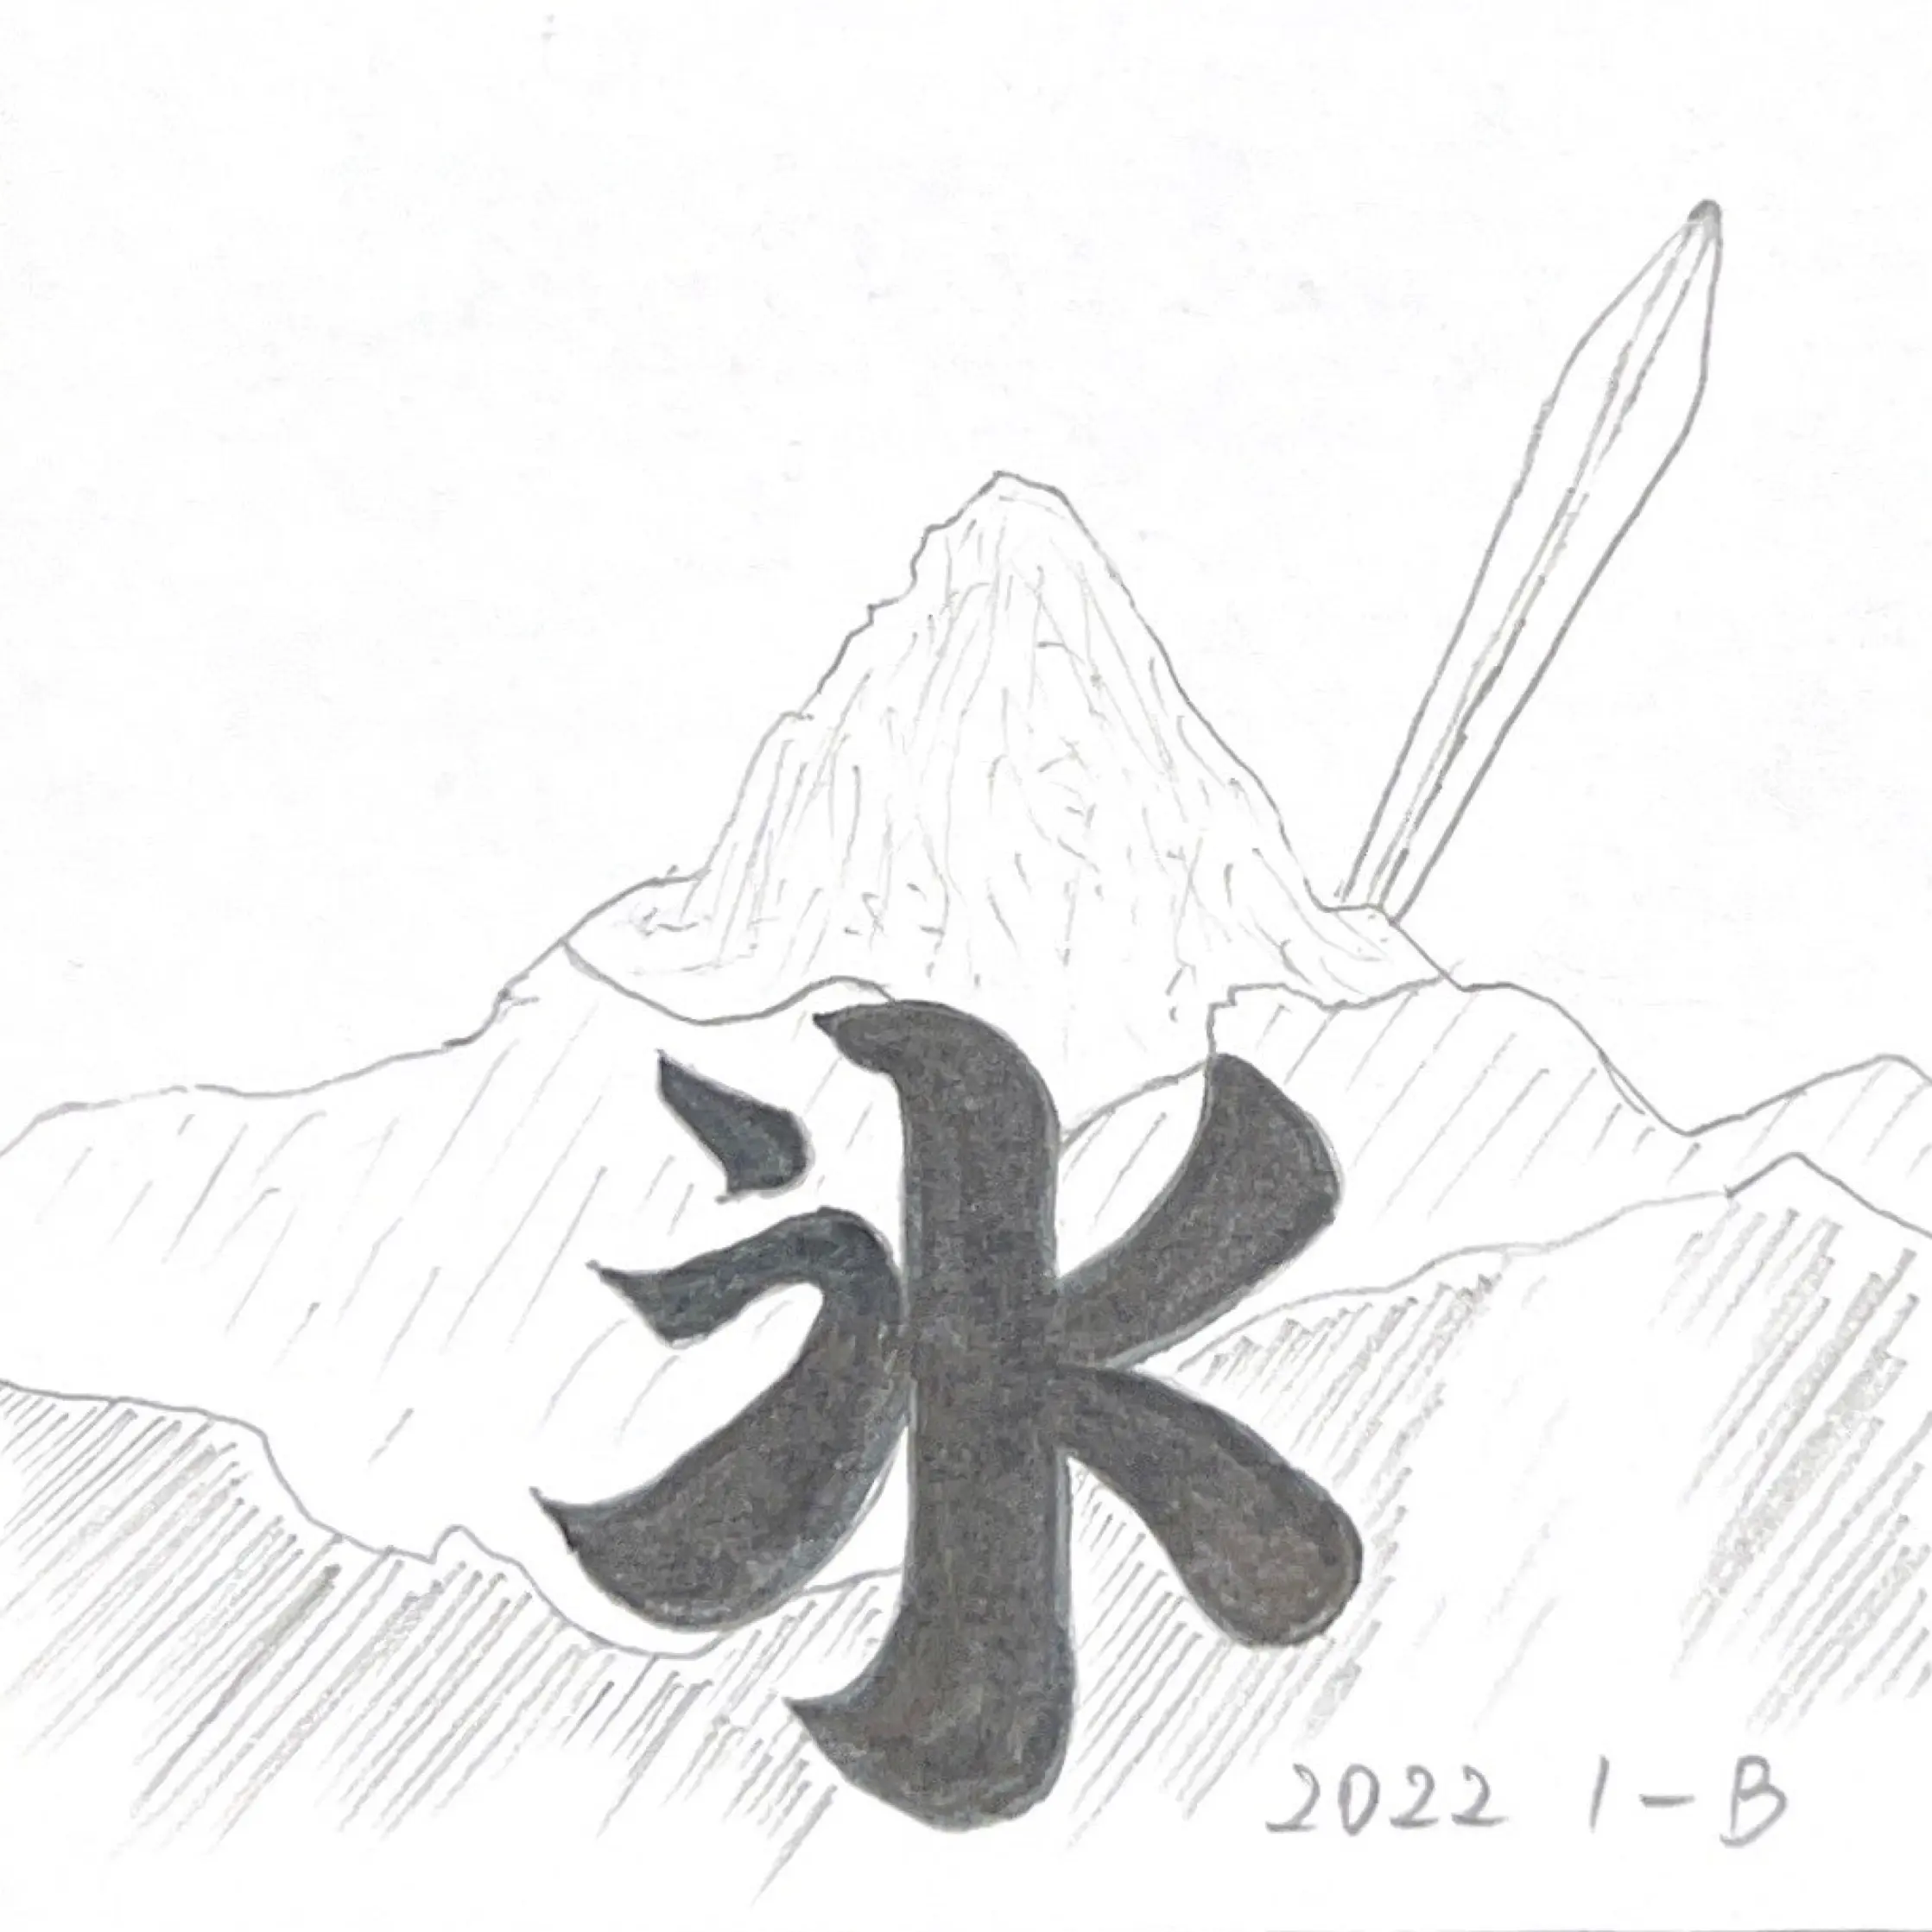 氷
2022 1-B